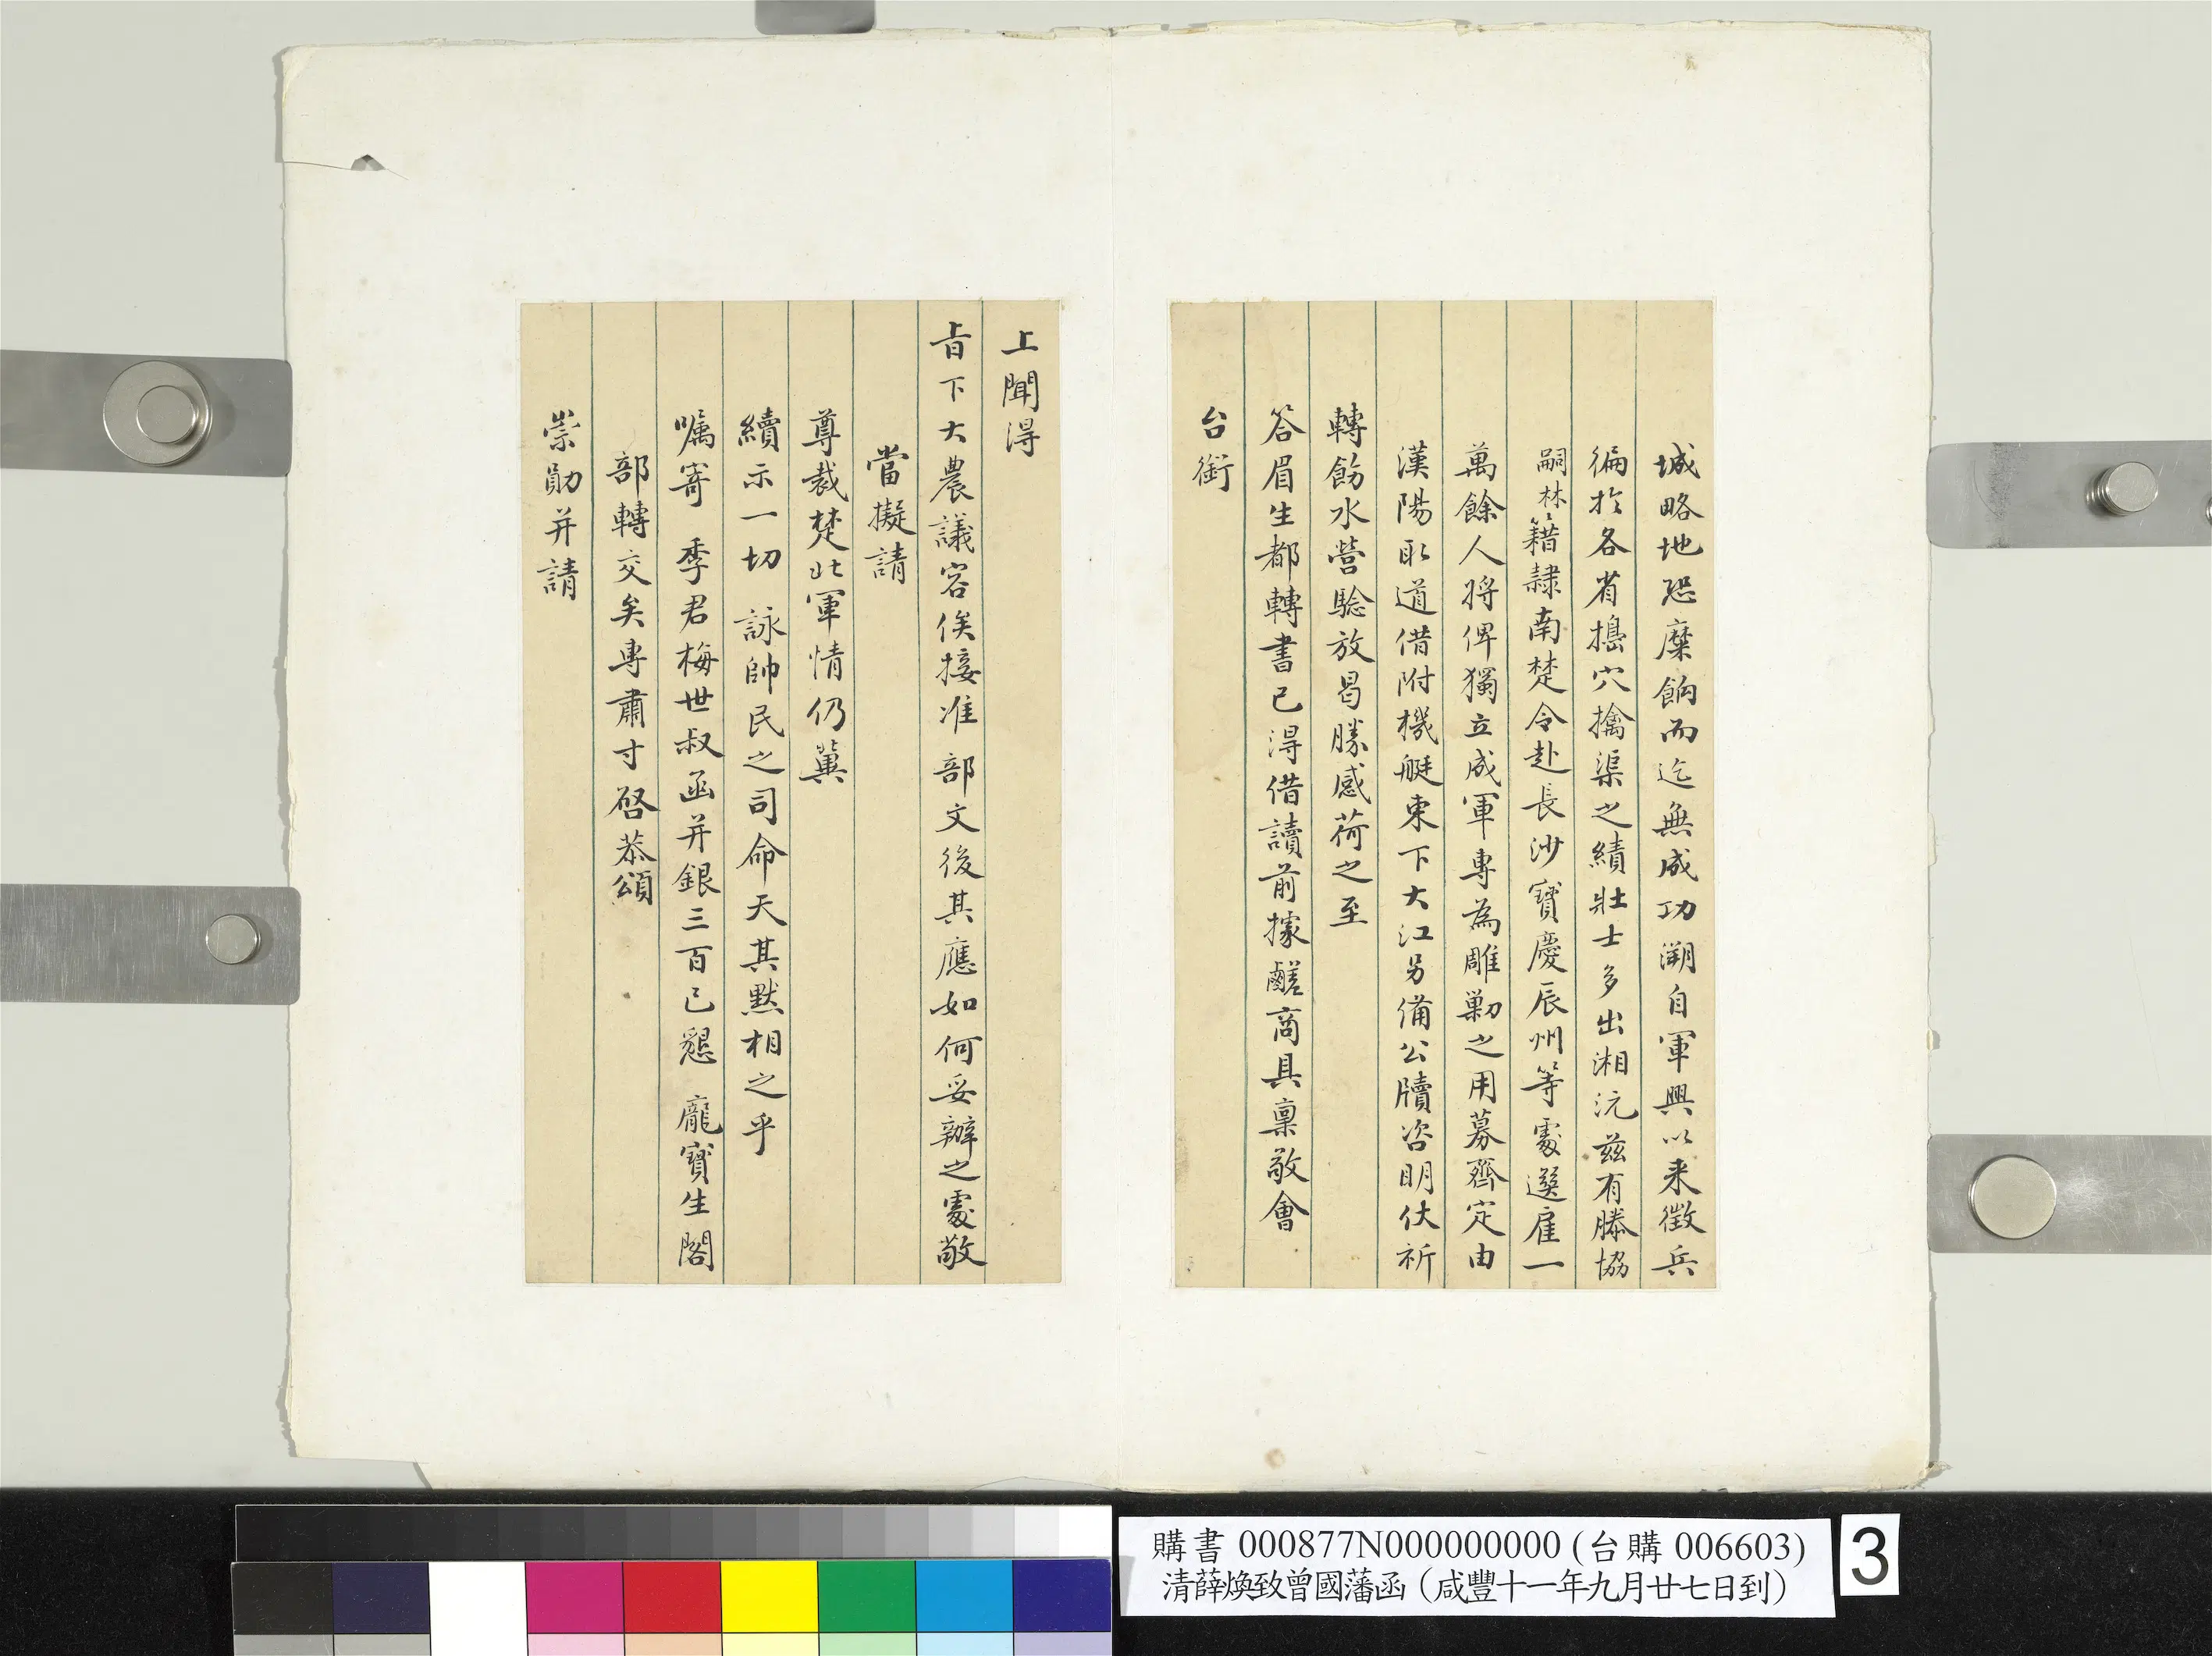 城略地恐糜餉而迄無成功溯自軍興以来徵兵
徧扵各省搗穴擒渠之績壯士多出湘沅茲有滕協
嗣林籍隷南楚令赴長沙寶慶辰州等處選雇一
萬餘人將俾獨立成軍專為雕勦之用募齊定由
漢陽取道借附機艇東下大江另備公牘咨明伏祈
轉飭水營驗放曷勝感荷之至
答眉生都轉書已得借讀前據鹺商具稟敬會
台銜
上聞得
旨下大農議容俟接准 部文後其應如何妥辦之處敬
當擬請
尊裁楚北軍情仍冀
續示一切 詠帥民之司命天其默相之乎
囑寄 季君梅世叔函并銀三百已懇 龐寶生閣
部轉交矣專肅寸啓恭頌
崇勛并請
購書 000877N000000000 (台購 006603)
清薛煥致曾國藩函（咸豐十一年九月廿七日到）
3